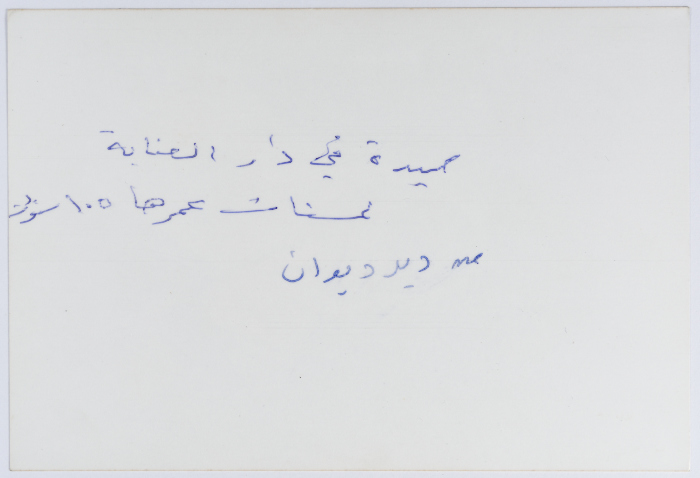 سيدة في دار العناية
لمسنات عمرها ١٠٥ سنوات
من دير ديوان